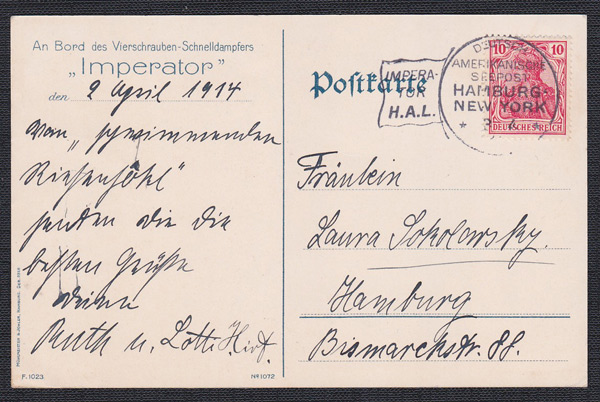 An Bord des Vierschrauben-Schnelldampfers
„Imperator"
den 2 April 1914
Vom „schwimmenden
Riesenhotel"
senden Dir die
besten Grüße
Deine
Ruth u. Lotte Hirt.
MÜHLMEISTER & JOHLER, HAMBURG.
F. 1023.
No 1072
Postkarte
IMPERA-
TOR
H.A.L.
DEUTSCH-
AMERIKANISCHE
SEEPOST
HAMBURG-
NEW YORK
10 10
DEUTSCHES REICH
Fräulein
Laura Sokolowsky.
Hamburg
Bismarckstr. 88.